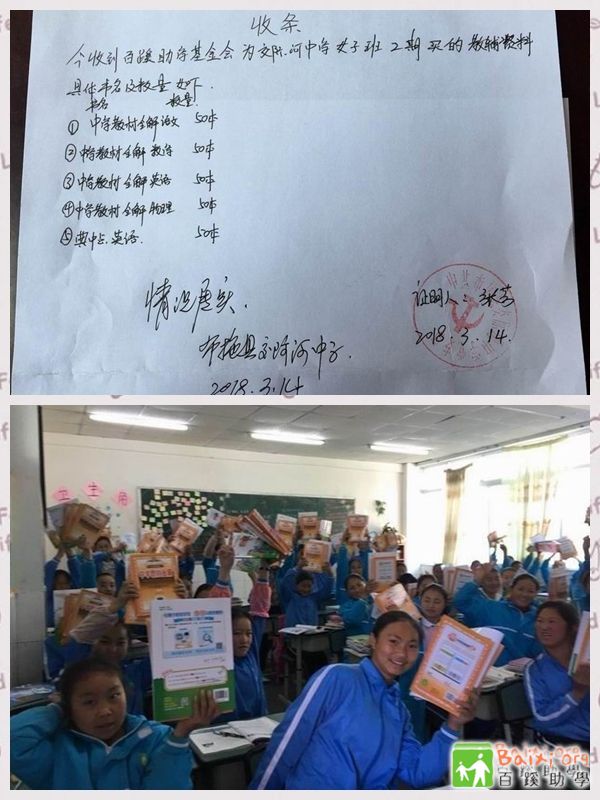 收条
今收到百蹊助学基金会为交际河中学女子班2期买的教辅资料
具体书名及数量如下
书名 数量
① 中学教材全解语文 50本
② 中学教材全解数学 50本
③ 中学教材全解英语 50本
④ 中学教材全解物理 50本
⑤ 典中点英语. 50本
情况属实.
证明人:
2018.3.14.
布拖县交际河中学.
2018.3.14
卫生角
Baixi.Org
百蹊助學